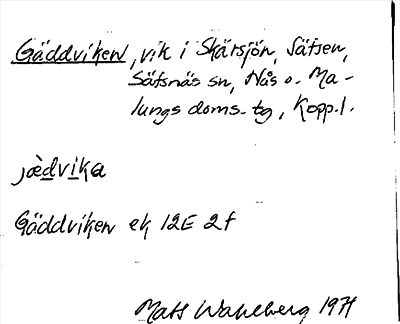 Gäddviken, vik i Skärsjön, Säfsen,
Säfsnäs sn, Nås o. Ma-
lungs doms. tg, Kopp.l.
jæ̀dvika
Gäddviken ek 12E 2f
Mats Wahlberg 1971